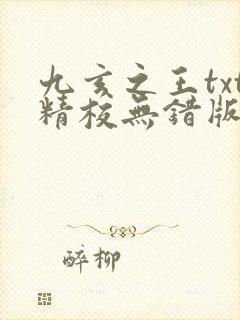 九亥之王txt
精校無錯版
醉柳